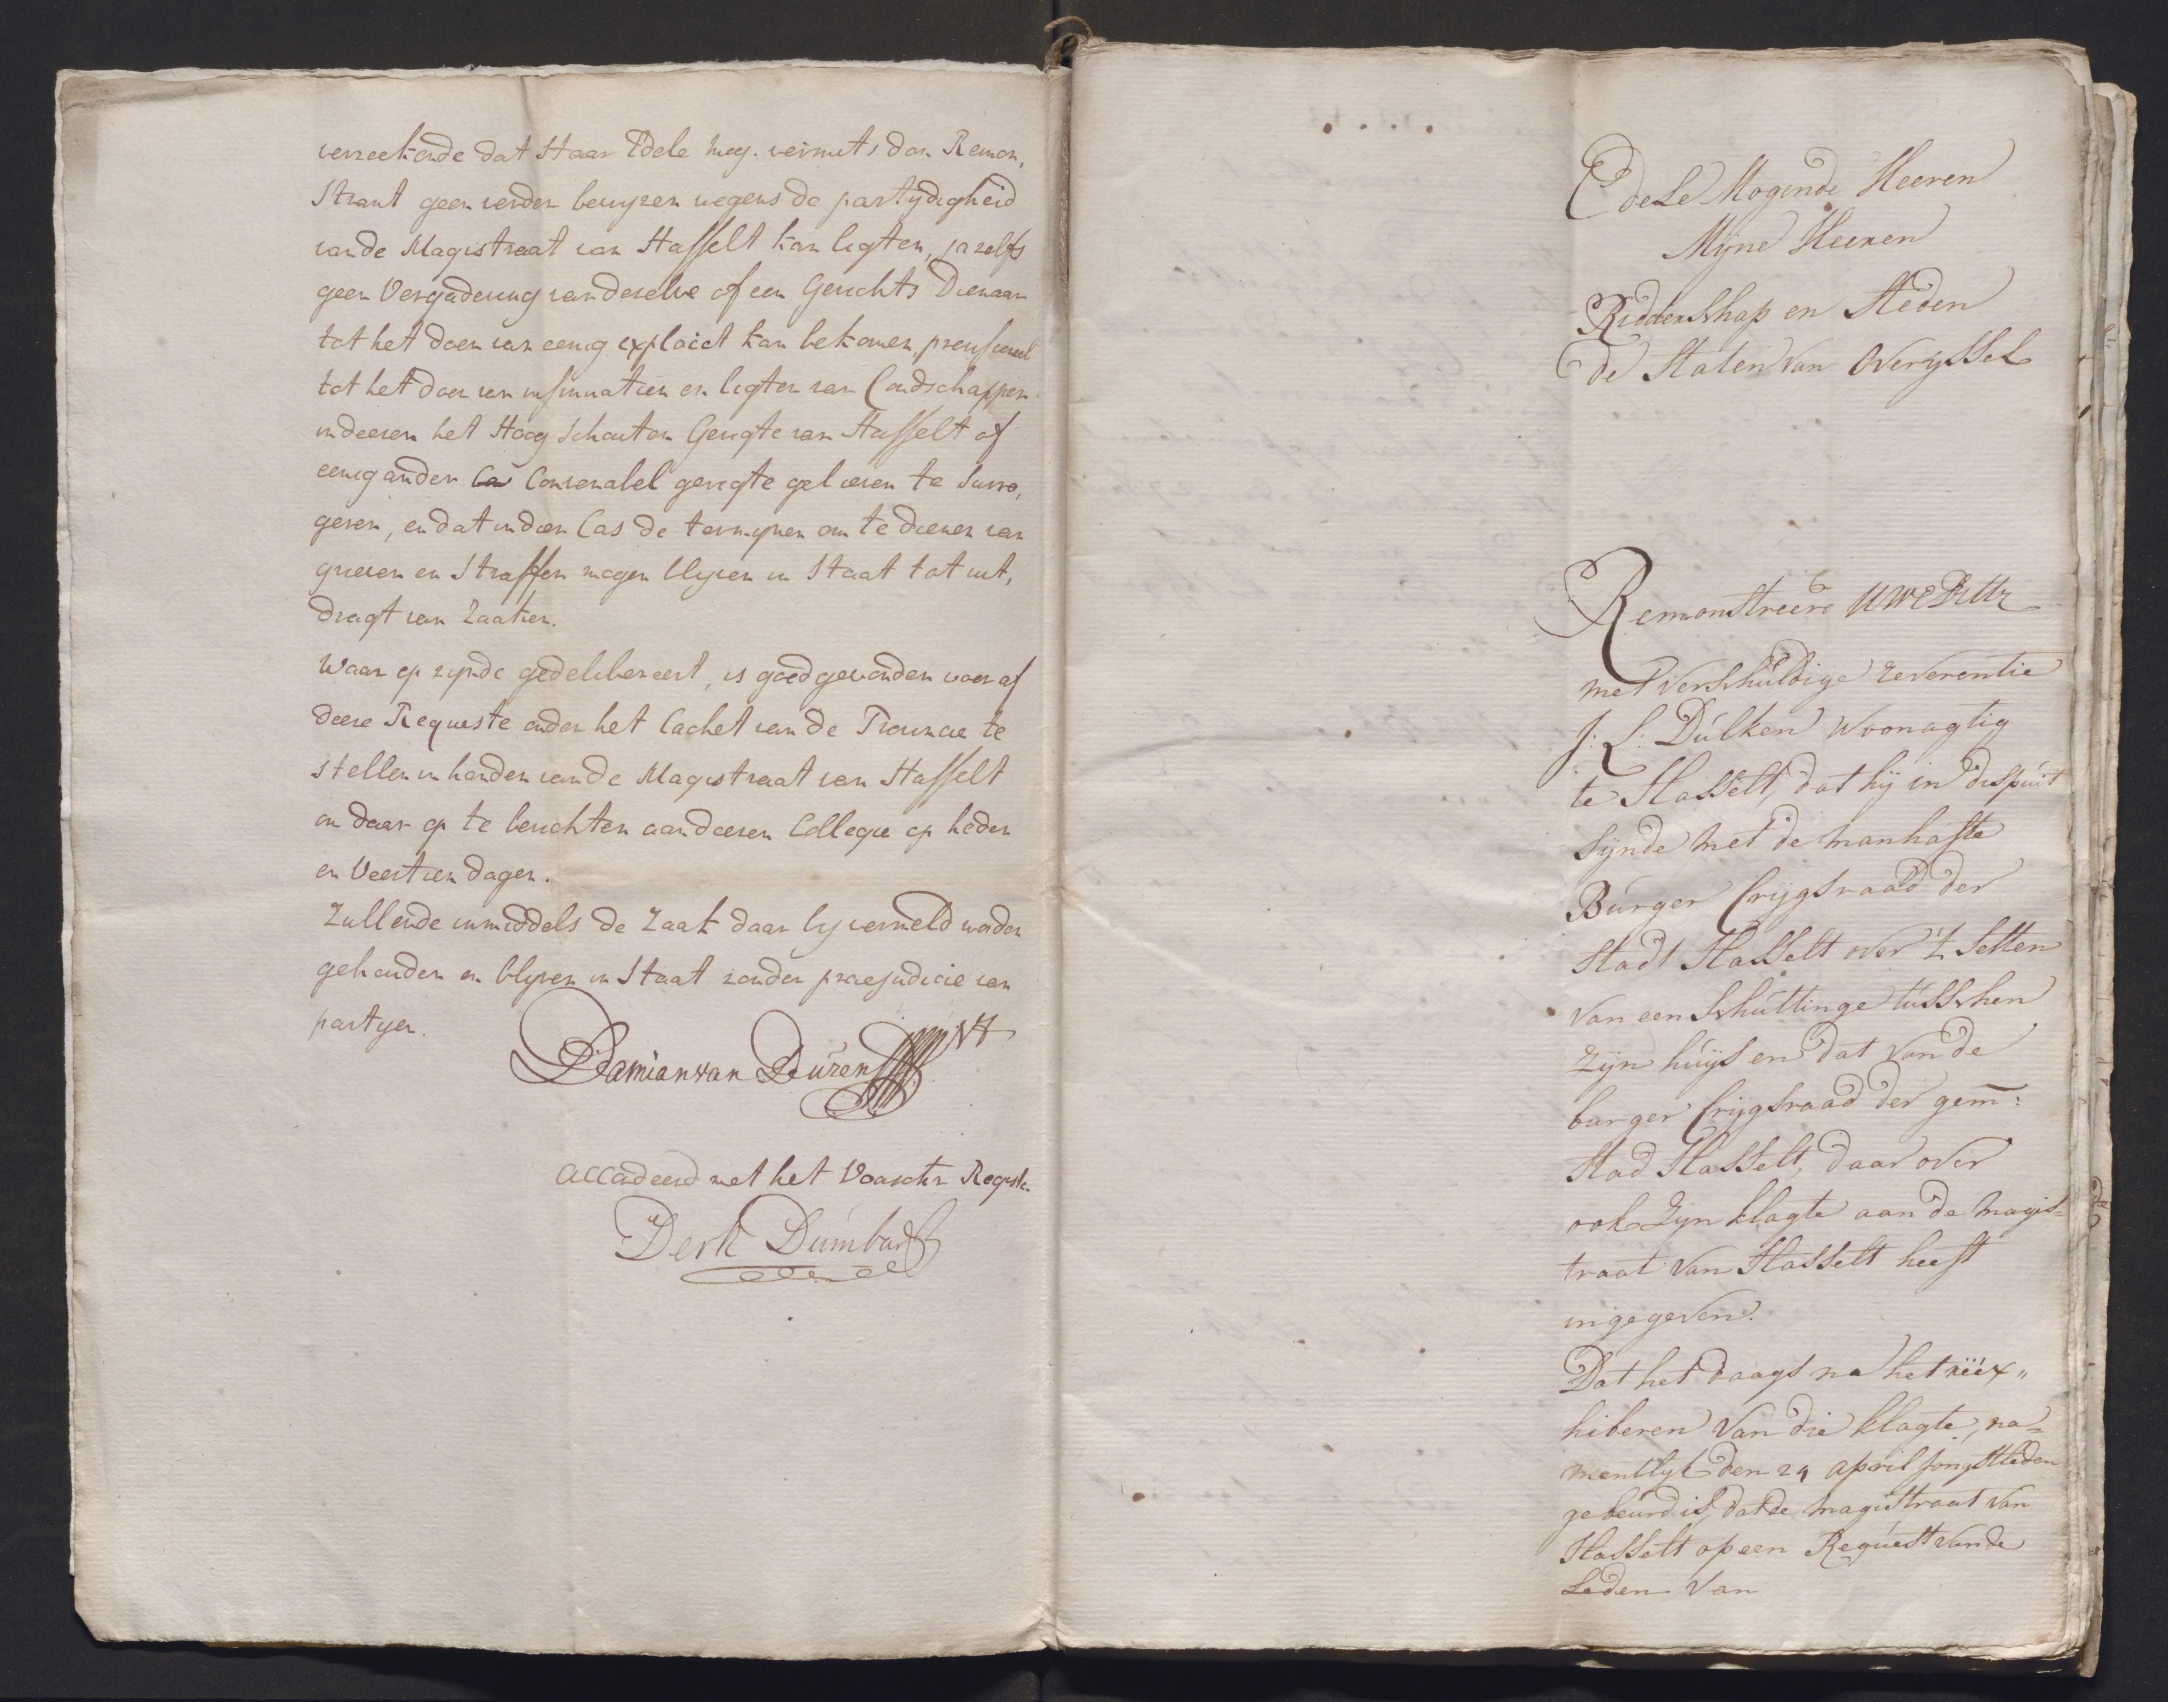 verzeekende dat Haar Edele Mog. vermits den Remon,
strant geen verder bewyzen wegens de partydigheid
van de Magistraat van Hasselt kan ligten, ja zelfs
geen Vergadering van deselve of een Gerichts Dienaar
tot het doen van eenig exploict kan bekomen, provisioneel
tot het doen van insinuatien en ligten van Condschappen
indeesen het Hoog Schouten Gerigte van Hasselt of
eenig ander Convenabel gerigte gelieven te Surro,
geren, en dat in dien Cas de termynen om te dienen van
grieven en Straffen mogen blyven in Staat tot uit,
dragt van Zaaken.
Waar op zynde gedelibereert, is goedgevonden voor af
deese Requeste onder het Cachet van de Provincie te
stellen in handen van de Magistraat van Hasselt
om daar op te berichten aan deesen Collegie op heden
en Veertien dagen.
Zullende inmiddels de Zaak daar by vermeld worden
gehouden en blyven in Staat zonder praejudicie van
partyen.
Damian van Dúren Vt
Accordeerd met het Voorschr Registr.
Derk Dumbar
Edele Mogende Heeren
Mijne Heeren
Ridderschap en Steden
de Staten van Overyssel
Remonstreerd UWEDHH
met verschúldige reverentie
J: L: Dúlken Woonagtig
te Hasselt, dat hij in dispúit
Sijnde met de manhafte
Búrger Crijgsraad der
Stadt Hasselt over 't Setten
van een Schúttinge tússchen
Zijn húijs en dat van de
burger Crijgsraad der gem:
Stad Hasselt, daar over
ook Zijn klagte aan de magis-
traat van Hasselt heeft
ingegeven.
Dat het daags na het
hiberen van die klagte, na-
mentlyk den 24 april jongstleden
gebeúrd is, dat de magistraat van
Hasselt op een Reqúest van de
Leden van